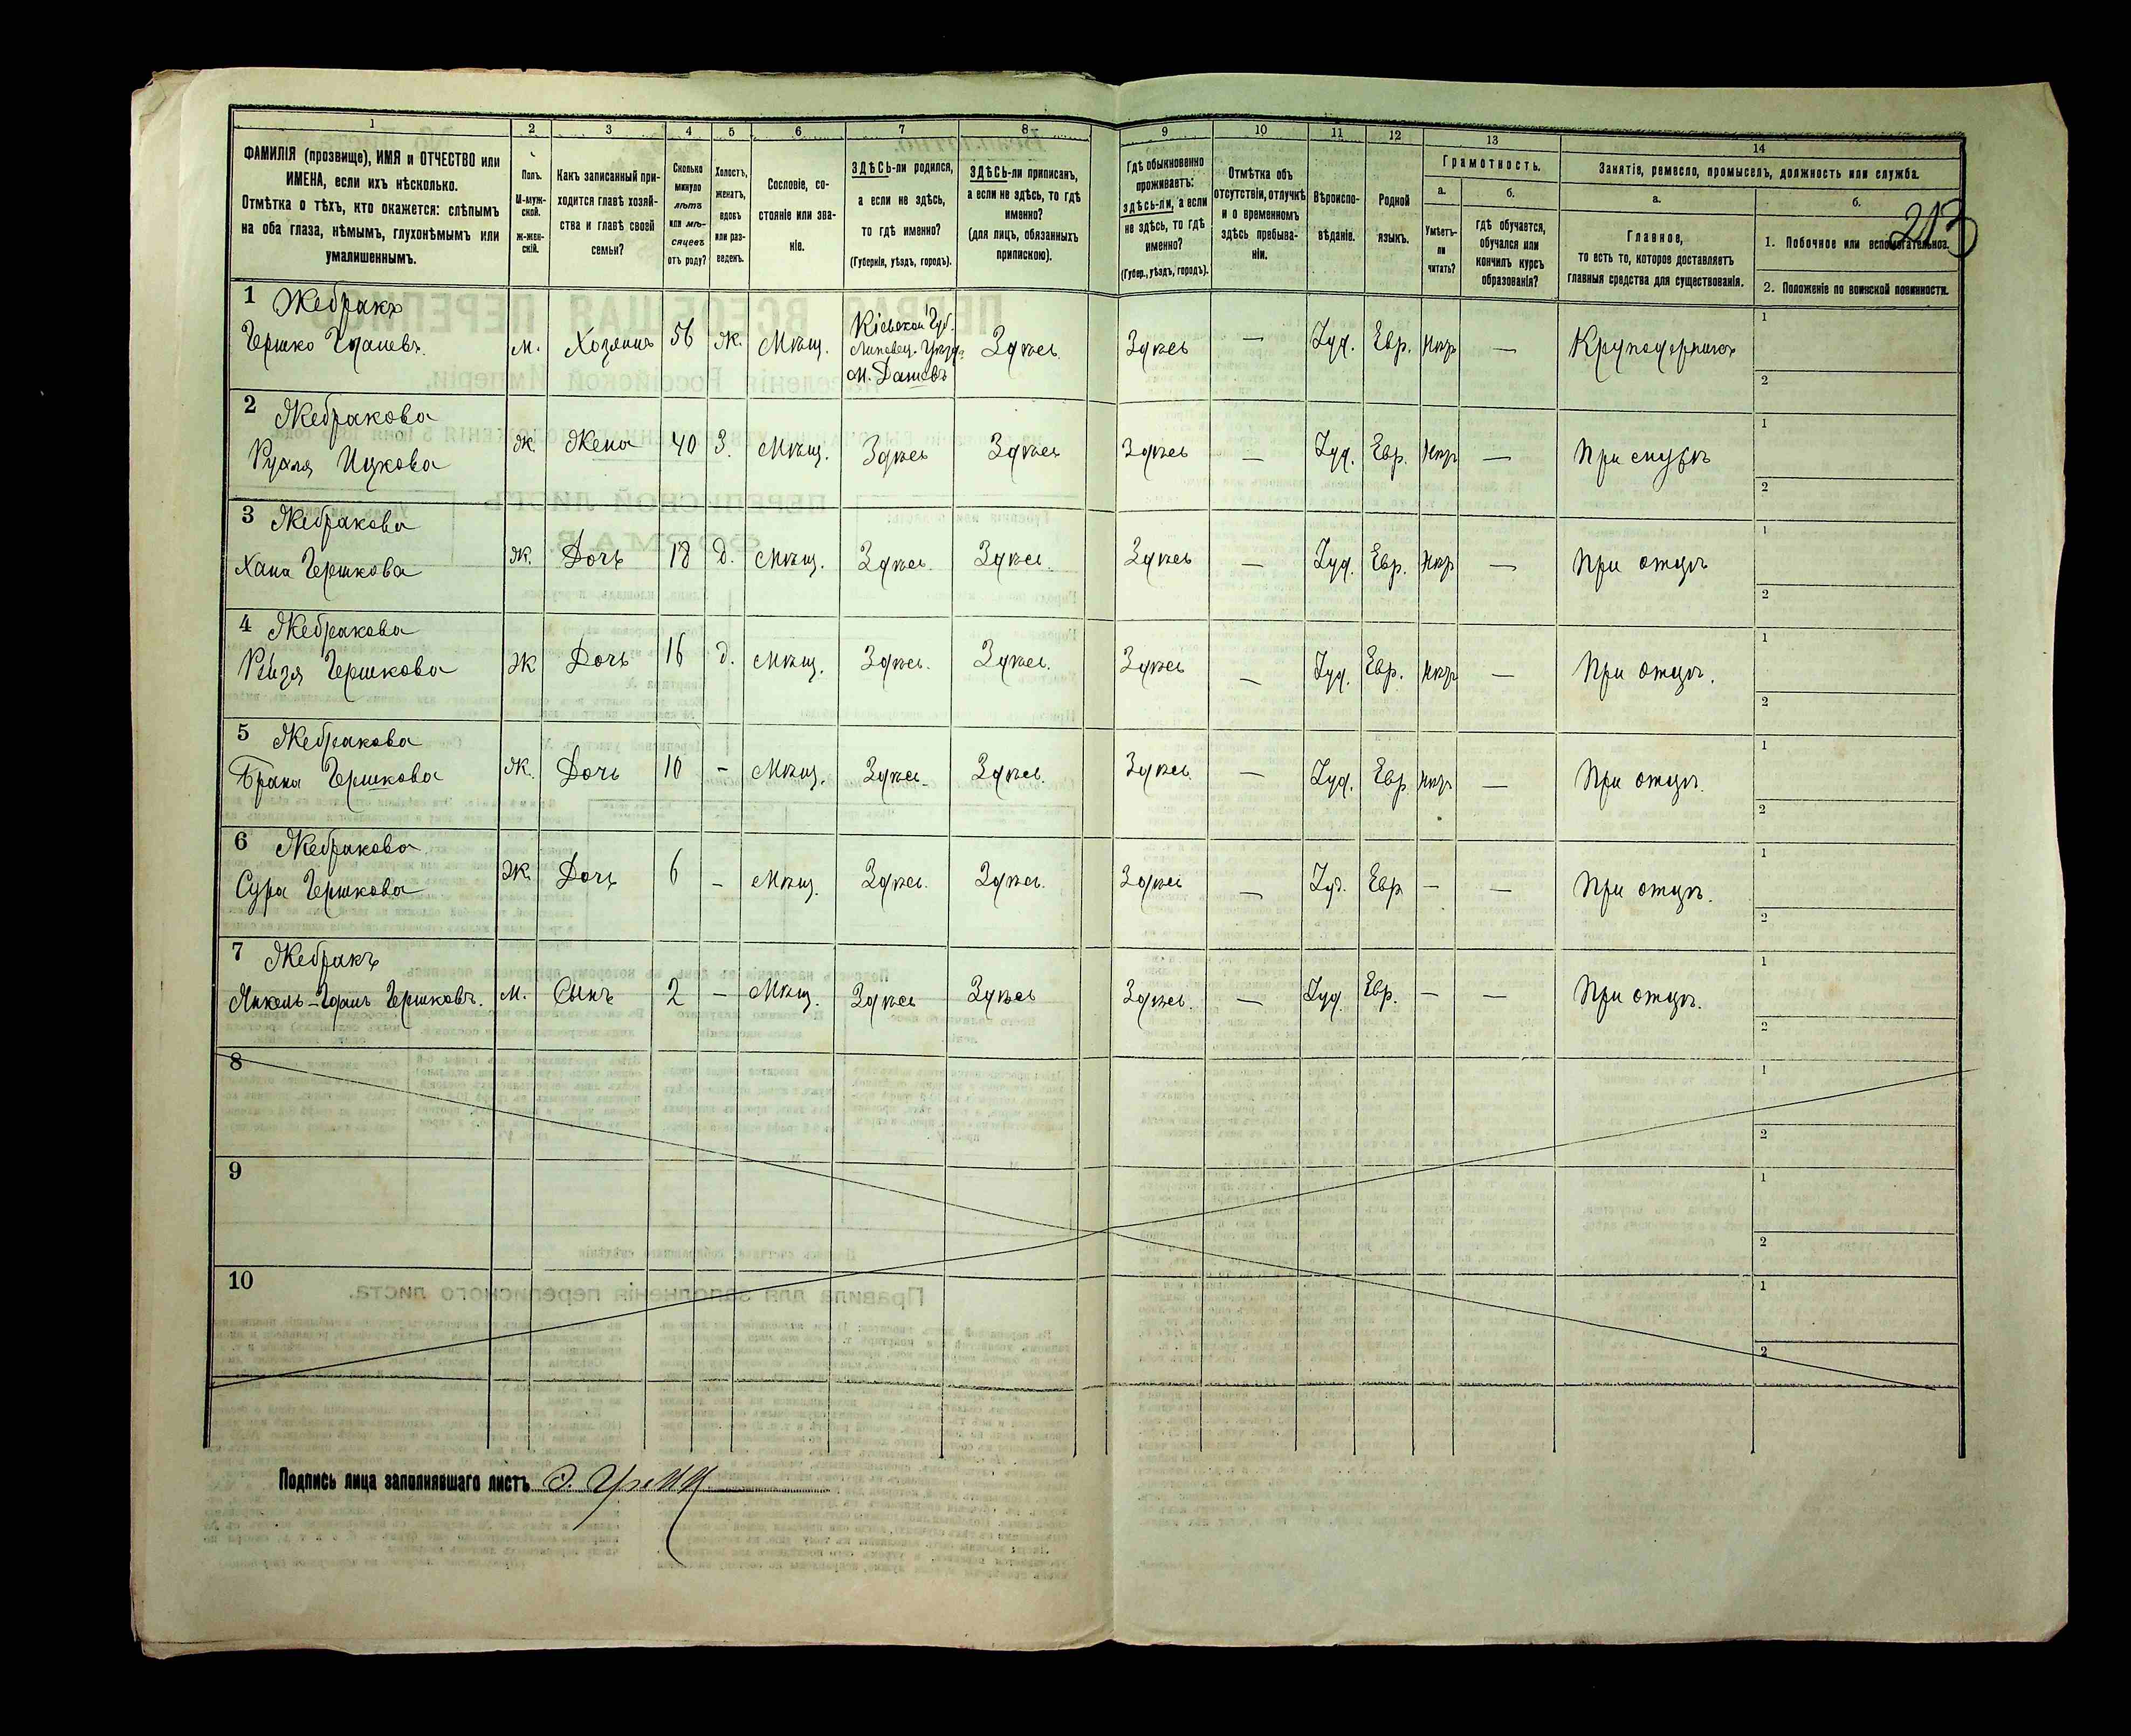 1 2 3 4 5 6 7 8 9 10 11 12 13 14
ФАМИЛІЯ (прозвище), ИМЯ и ОТЧЕСТВО или
ИМЕНА, если ихъ нѣсколько.
Отмѣтка о тѣхъ, кто окажется: слѣпымъ
на оба глаза, нѣмымъ, глухонѣмымъ или
умалишеннымъ.
Полъ.
М-муж-
ской.
ж-жен-
скій.
Какъ записанный при-
ходится главѣ хозяй-
ства и главѣ своей
семьи?
Сколько
минуло
лѣтъ
или мѣ-
сяцевъ
отъ роду?
Холостъ,
женатъ,
вдовъ
или раз-
веденъ.
Сословіе, со-
стояніе или зва-
ніе.
ЗДѢСЬ-ли родился,
а если не здѣсь,
то гдѣ именно?
(Губернія, уѣздъ, городъ).
ЗДѢСЬ-ли приписанъ,
а если не здѣсь, то гдѣ
именно?
(для лицъ, обязанныхъ
припискою).
Гдѣ обыкновенно
проживаетъ:
здѣсь-ли, а если
не здѣсь, то гдѣ
именно?
(Губер., уѣздъ, городъ).
Отмѣтка объ
отсутствіи, отлучкѣ
и о временномъ
здѣсь пребыва-
ніи.
Вѣроиспо-
вѣданіе.
Родной
языкъ.
Грамотность.
а.
Умѣетъ-
ли
читать?
б.
гдѣ обучается,
обучался или
кончилъ курсъ
образованія?
Занятіе, ремесло, промыселъ, должность или служба.
а.
Главное,
то есть то, которое доставляетъ
главныя средства для существованія.
б.
213
1. Побочное или вспомогательное.
2. Положеніе по воинской повинности.
1 Жебракъ
Гершко м. Хозяинъ 56 ж. Мѣщ. Кіевской Губ. Липовец. Уѣзд. м. Дашевъ Здѣсь Здѣсь — Іуд. Евр. — Круподерникъ
1
2
2 Жебракова
Рухля Ицкова ж. Жена 40 З. Мѣщ. Здѣсь Здѣсь Здѣсь — Іуд. Евр. —
1
2
3 Жебракова
Хана Гершкова ж. Дочь 18 д. Мѣщ. Здѣсь Здѣсь Здѣсь — Іуд. Евр. — При отцѣ
1
2
4 Жебракова
Рейзя Гершкова ж Дочь 16 д. Мѣщ. Здѣсь. Здѣсь. Здѣсь — Іуд. Евр. — При отцѣ.
1
2
5 Жебракова
Брана Гершкова ж. Дочь 10 - Мѣщ. Здѣсь Здѣсь. Здѣсь — Іуд. Евр. — При отцѣ.
1
2
6 Жебракова
Сура Гершкова ж. Дочь 6 - Мѣщ. Здѣсь. Здѣсь. Здѣсь — Іуд. Евр — — При отцѣ.
1
2
7 Жебракъ
Янкель- Гершковъ. м. Сынъ 2 — Мѣщ. Здѣсь Здѣсь Здѣсь. — Іуд. Евр. — — При отцѣ.
1
2
8
1
2
9
1
2
10
1
2
Подпись лица заполнявшаго листъ